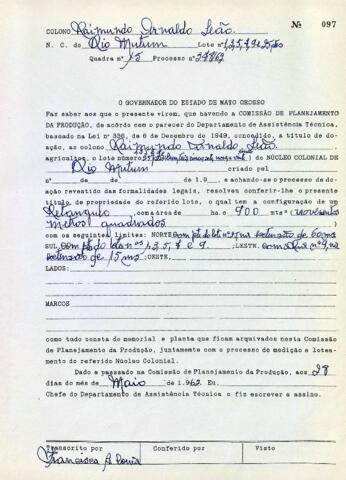 Nº 097
COLONO Raimundo Arnaldo Leão.
N. C. do Rio Mutum Lote nº 1,3,5,7,9 e 25,
Quadra nº 15 Processo nº
O GOVERNADOR DO ESTADO DE MATO GROSSO
Faz saber aos que o presente virem, que havendo a COMISSÃO DE PLANEJAMENTO
DA PRODUÇÃO, de acôrdo com o parecer do Departamento de Assistência Técnica,
bascado na Lei nº 336, de 6 de Dezembro de 1949, concedido, a título de doa-
ção, ao colono Raimundo Arnaldo Leão.
agricultor, o lote número do NÚCLEO COLONIAL DE
Rio Mutum criado pel
nº de de de 1.9 e achando-se o processo da do-
ação revestido das formalidades legais, resolveu conferir-lhe o presente
título, de propriedade do referido lote, o qual tem a configuração de um
Retangulo com a área de ha. 900 mts² (novecentos
metros quadrados
com os seguintes limites: NORTE, com pte do lote nº 27, na extensão de 60 ms
SUL com pte do lotes nºs 1,3,5,7 e 9. ; LESTE, com a Rua nº 9, na
extensão de 15 ms ; OESTE,
LADOS:
MARCOS
como tudo consta do memorial e planta que ficam arquivados nesta Comissão
de Planejamento da Produção, juntamente com o processo de medição e lotea-
mento do referido Núcleo Colonial.
Dado e passado na Comissão de Planejamento da Produção, aos 28
dias do mês de Maio de 1.962. Eu,
Chefe do Departamento de Assistência Técnica o fiz escrever e assino.
Transcrito por Conferido por Visto
Francisca A.